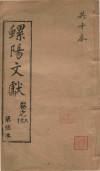 共十本
螺陽文獻
卷之
第伍本